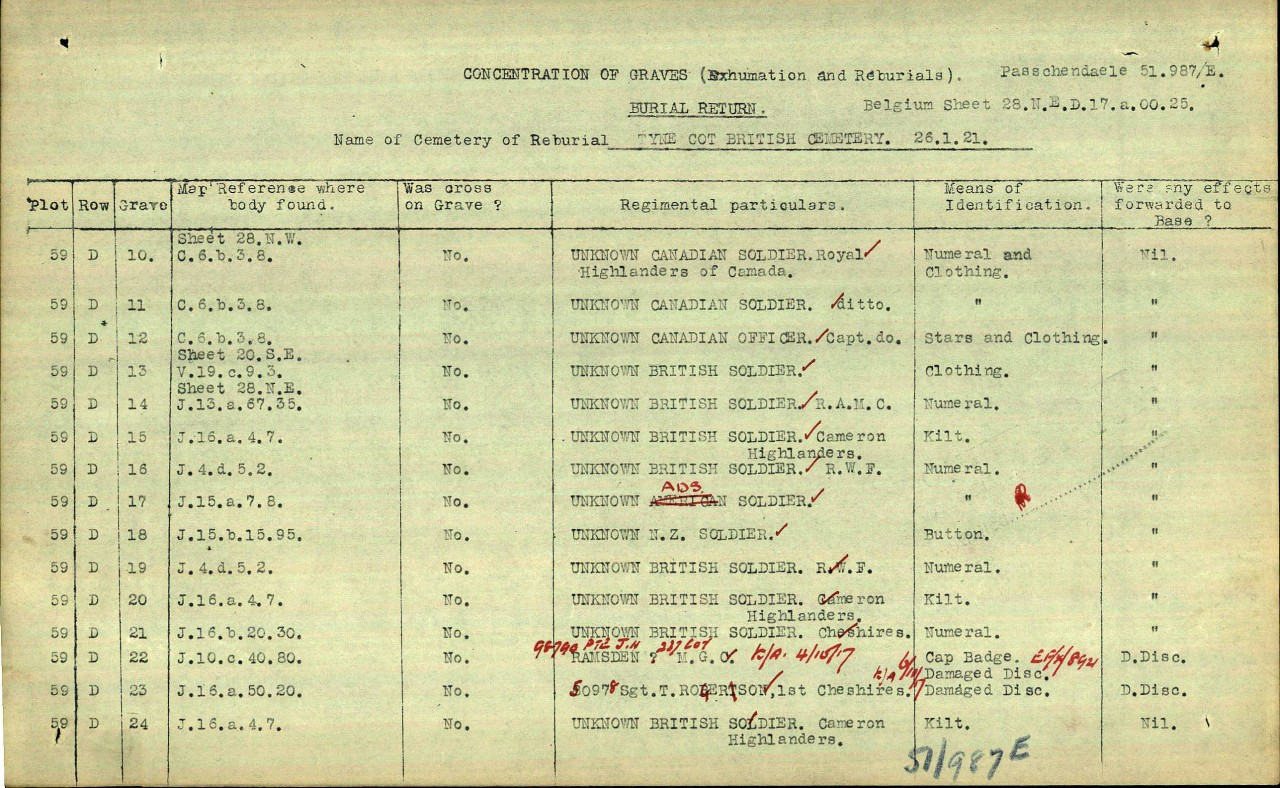 CONCENTRATION OF GRAVES (Exhumation and Reburials). Passchendaele 51.987/E.
BURIAL RETURN. Belgium Sheet 28.N.E.D.17.a.00.25.
Name of Cemetery of Reburial TYNE COT BRITISH CEMETERY. 26.1.21.
Plot Row Grave Map Reference where body found. Was cross on Grave ? Regimental particulars. Means of Identification. Were any effects forwarded to Base ?
Sheet 28.N.W.
59 D 10. C.6.b.3.8. No. UNKNOWN CANADIAN SOLDIER. Royal Numeral and Nil.
Highlanders of Camada. Clothing.
59 D 11 C.6.b.3.8. No. UNKNOWN CANADIAN SOLDIER. ditto. " "
59 D 12 C.6.b.3.8. No. UNKNOWN CANADIAN OFFICER. Capt.do. Stars and Clothing. "
Sheet 20.S.E.
59 D 13 V.19.c.9.3. No. UNKNOWN BRITISH SOLDIER. Clothing. "
Sheet 28.N.E.
59 D 14 J.13.a.67.35. No. UNKNOWN BRITISH SOLDIER. R.A.M.C. Numeral. "
59 D 15 J.16.a.4.7. No. UNKNOWN BRITISH SOLDIER. Cameron Kilt. "
Highlanders.
59 D 16 J.4.d.5.2. No. UNKNOWN BRITISH SOLDIER. R.W.F. Numeral. "
AUS.
59 D 17 J.15.a.7.8. No. UNKNOWN AMERICAN SOLDIER. " "
59 D 18 J.15.b.15.95. No. UNKNOWN N.Z. SOLDIER. Button. "
59 D 19 J.4.d.5.2. No. UNKNOWN BRITISH SOLDIER. R.W.F. Numeral. "
59 D 20 J.16.a.4.7. No. UNKNOWN BRITISH SOLDIER. Cameron Kilt. "
Highlanders.
59 D 21 J.16.b.20.30. No. UNKNOWN BRITISH SOLDIER. Cheshires. Numeral. "
PTE J.H
59 D 22 J.10.c.40.80. No. RAMSDEN ? M.G.C. K/A. 4/10/17 Cap Badge. D.Disc.
K/A Damaged Disc.
59 D 23 J.16.a.50.20 No. 50978 Sgt.T. ROBERTSON, 1st Cheshires. Damaged Disc. D.Disc.
59 D 24 J.16.a.4.7. No. UNKNOWN BRITISH SOLDIER. Cameron Kilt. Nil.
Highlanders.
51/987 E